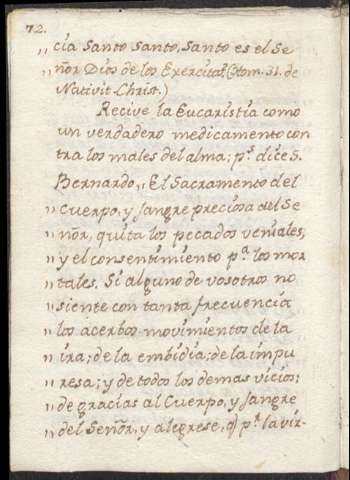 72.
„ cia Santo Santo, Santo es el Se
„ ñor Dios de los Exercitos (Hom. 31. de
„ Nativit. Christ.)
Recive la Eucaristia como
un verdadero medicamento con
tra los males del alma; pˢ. dice S.
Bernardo, „ El Sacramento del
„ Cuerpo, y Sangre preciosa del Se
„ ñor, quita los pecados veniales,
„ y el consentimiento pᵃ. los mor
„ tales. Si alguno de vosotros no
„ siente con tanta frecuencia
„ los acerbos movimientos de la
„ ira; de la embidia; de la impu
„ resa; y de todos los demas vicios;
„ de gracias al Cuerpo, y Sangre
„ del Señor, y alegrese, q̃ pʳ. la vir-